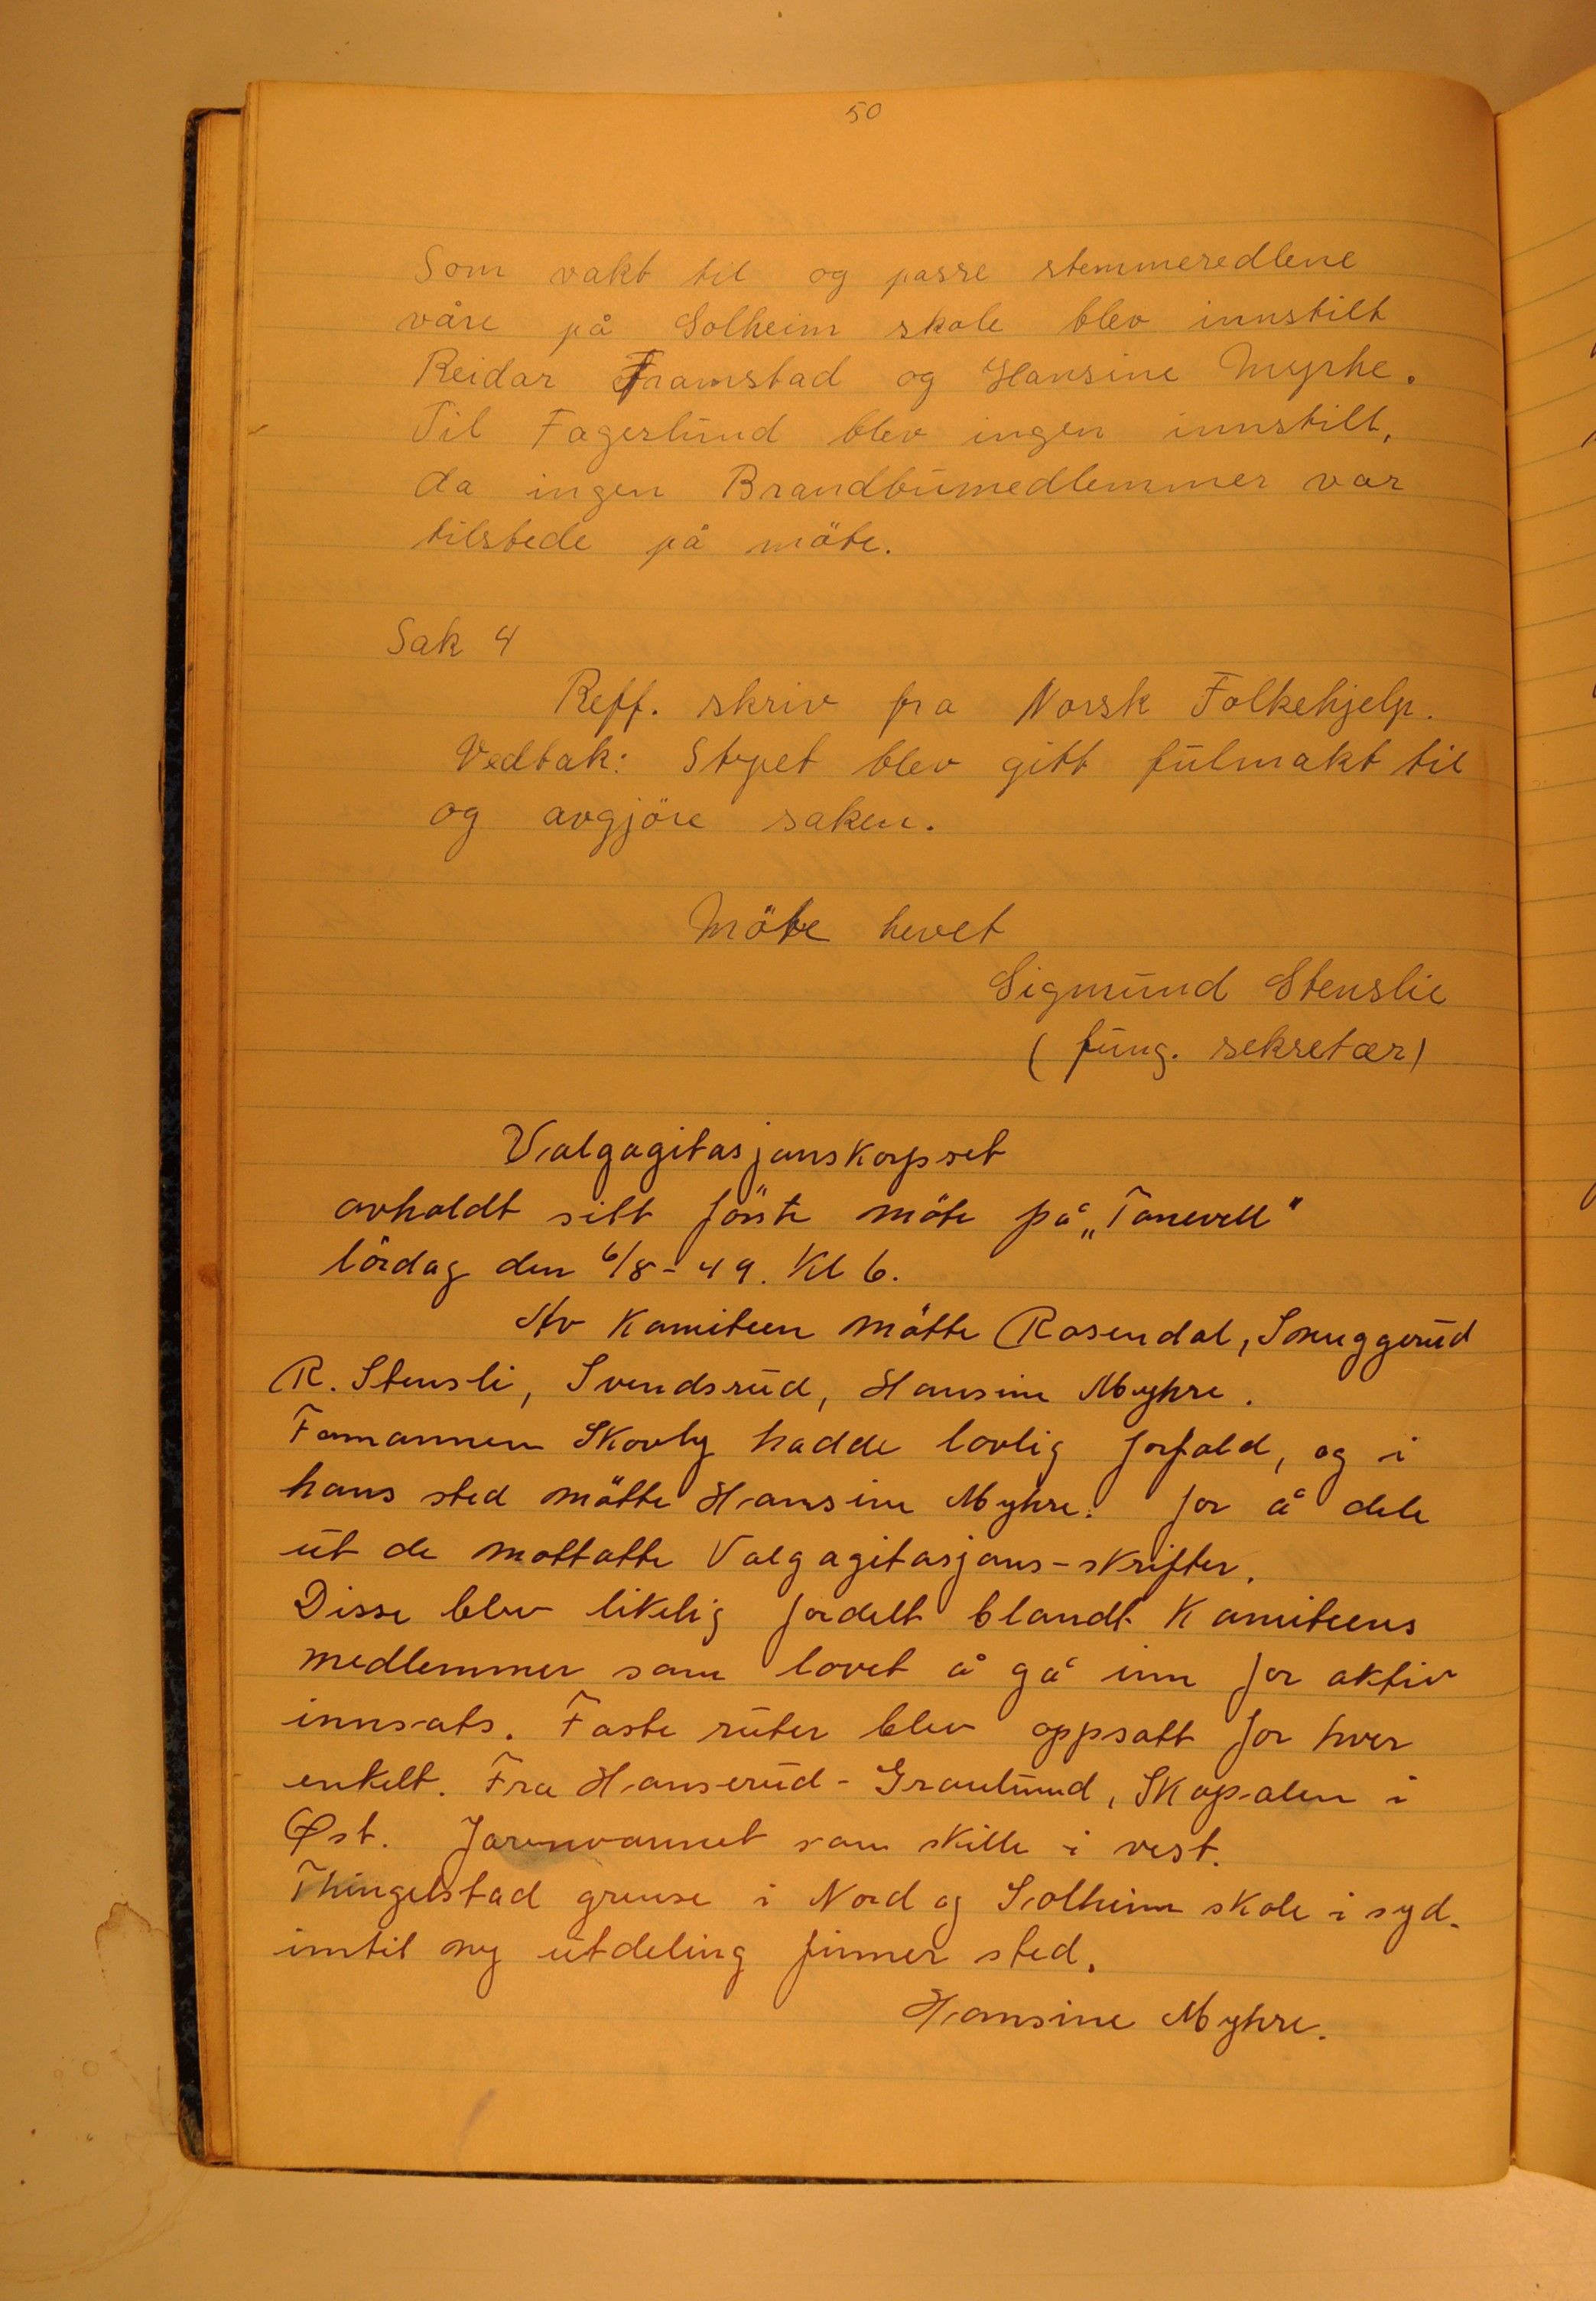 50
Som vakt til og passe stemmesedlene
våre på Solheim skole blev innstilt
Reidar Framstad og Hansine Myrhe.
Til Fagerlund blev ingen innstilt,
da ingen Brandbumedlemmer var
tilstede på möte.
Sak 4
Reff. skriv fra Norsk Folkehjelp.
Vedtak: Stypet blev gitt fulmakt til
og avgjöre saken.
Möte hevet
Sigmund Stenslie
(fung. sekretær)
Valgagitasjonskorpset
avholdt sitt förste möte på „Tonevell"
lördag den 6/8-49. Kl 6.
Av Komiteen mötte Rosendal, Smuggerud
R. Stensli, Svendsrud, Hansine Myhre.
Formannen Skovly hadde lovlig forfald, og i
hans sted mötte Hansine Myhre. for å dele
ut de mottatte Valgagitasjons-skrifter.
Disse blev likelig fordelt blandt Komiteens
medlemmer som lovet å gå inn for aktiv
innsats. Faste ruter blev oppsatt for hver
enkelt. Fra Hanserud - Granlund, Skopalen i
Øst. Jarenvannet som skille i vest.
Thingelstad grense i Nord og Solheim skole i syd.
inntil ny utdeling finner sted.
Hansine Myhre.